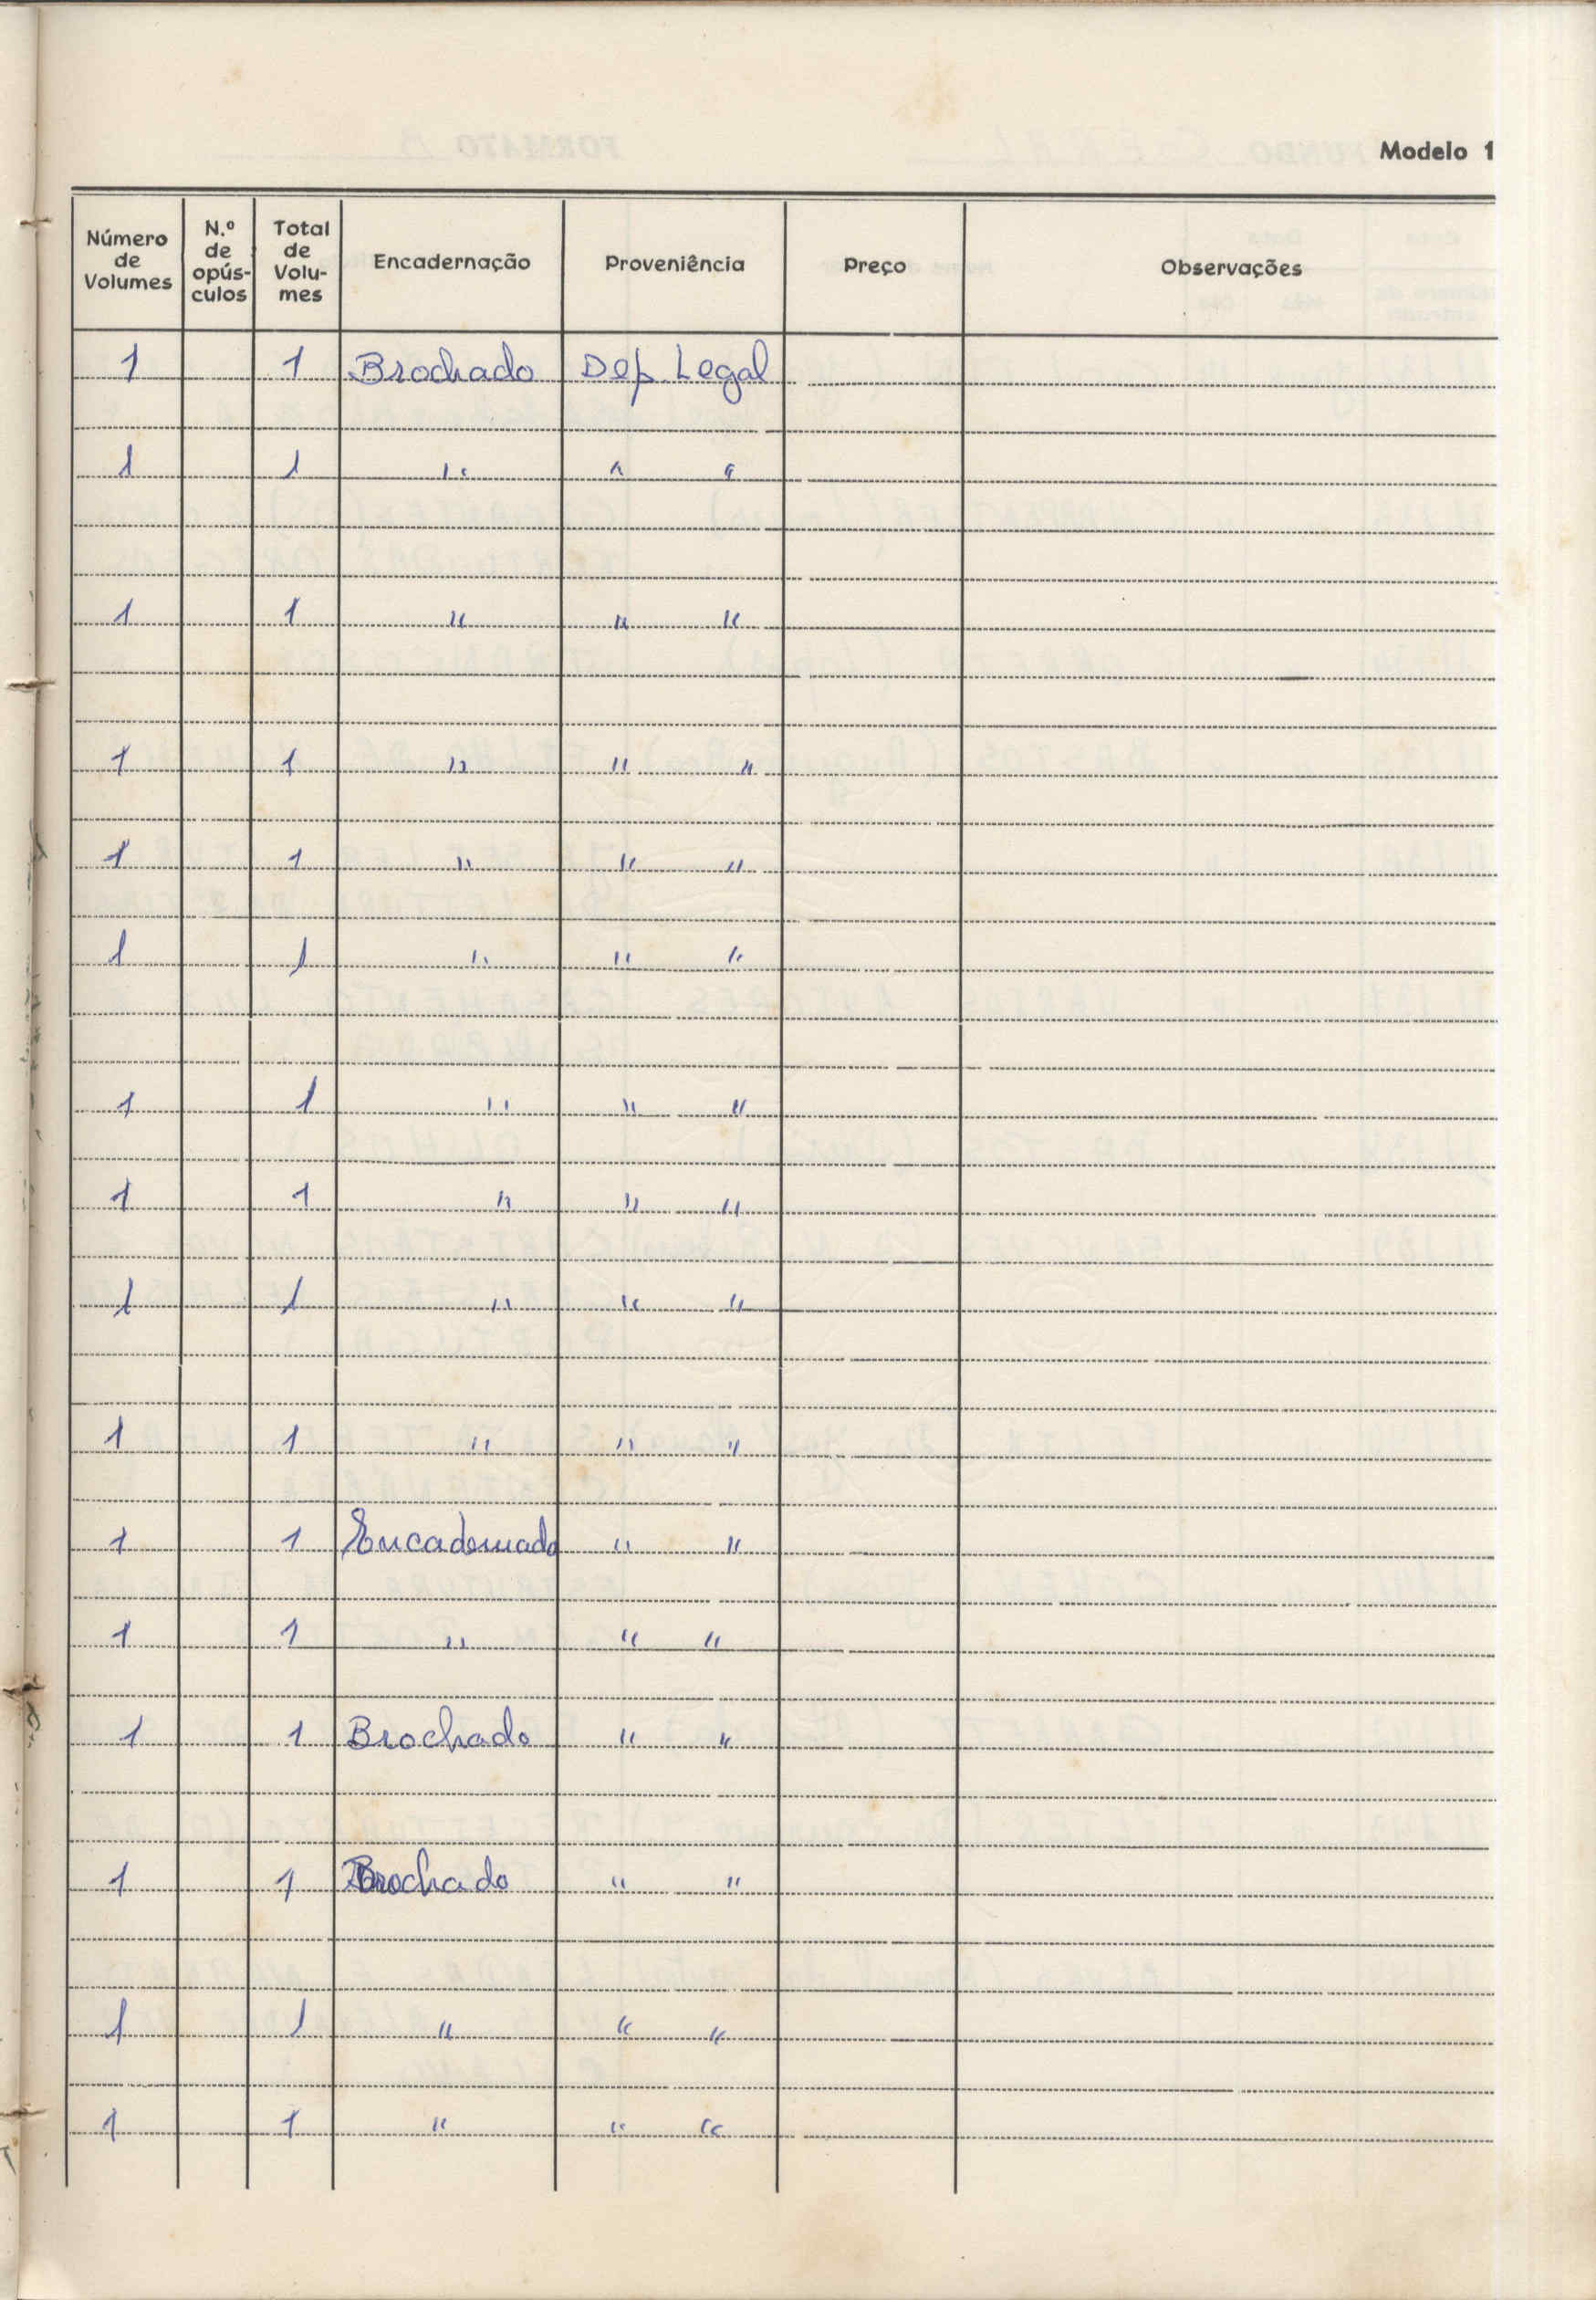 Modelo 1
Número de Volumes | N.º de opús-culos | Total de Volu-mes | Encadernação | Proveniência | Preço | Observações
1 1 Brochado Dep Legal
1 1 " " "
1 1 " " "
1 1 " " "
1 1 " " "
1 1 " " "
1 1 " " "
1 1 " " "
1 1 " " "
1 1 " " "
1 1 Encadernado " "
1 1 " " "
1 1 Brochado " "
1 1 Brochado " "
1 1 " " "
1 1 " " "